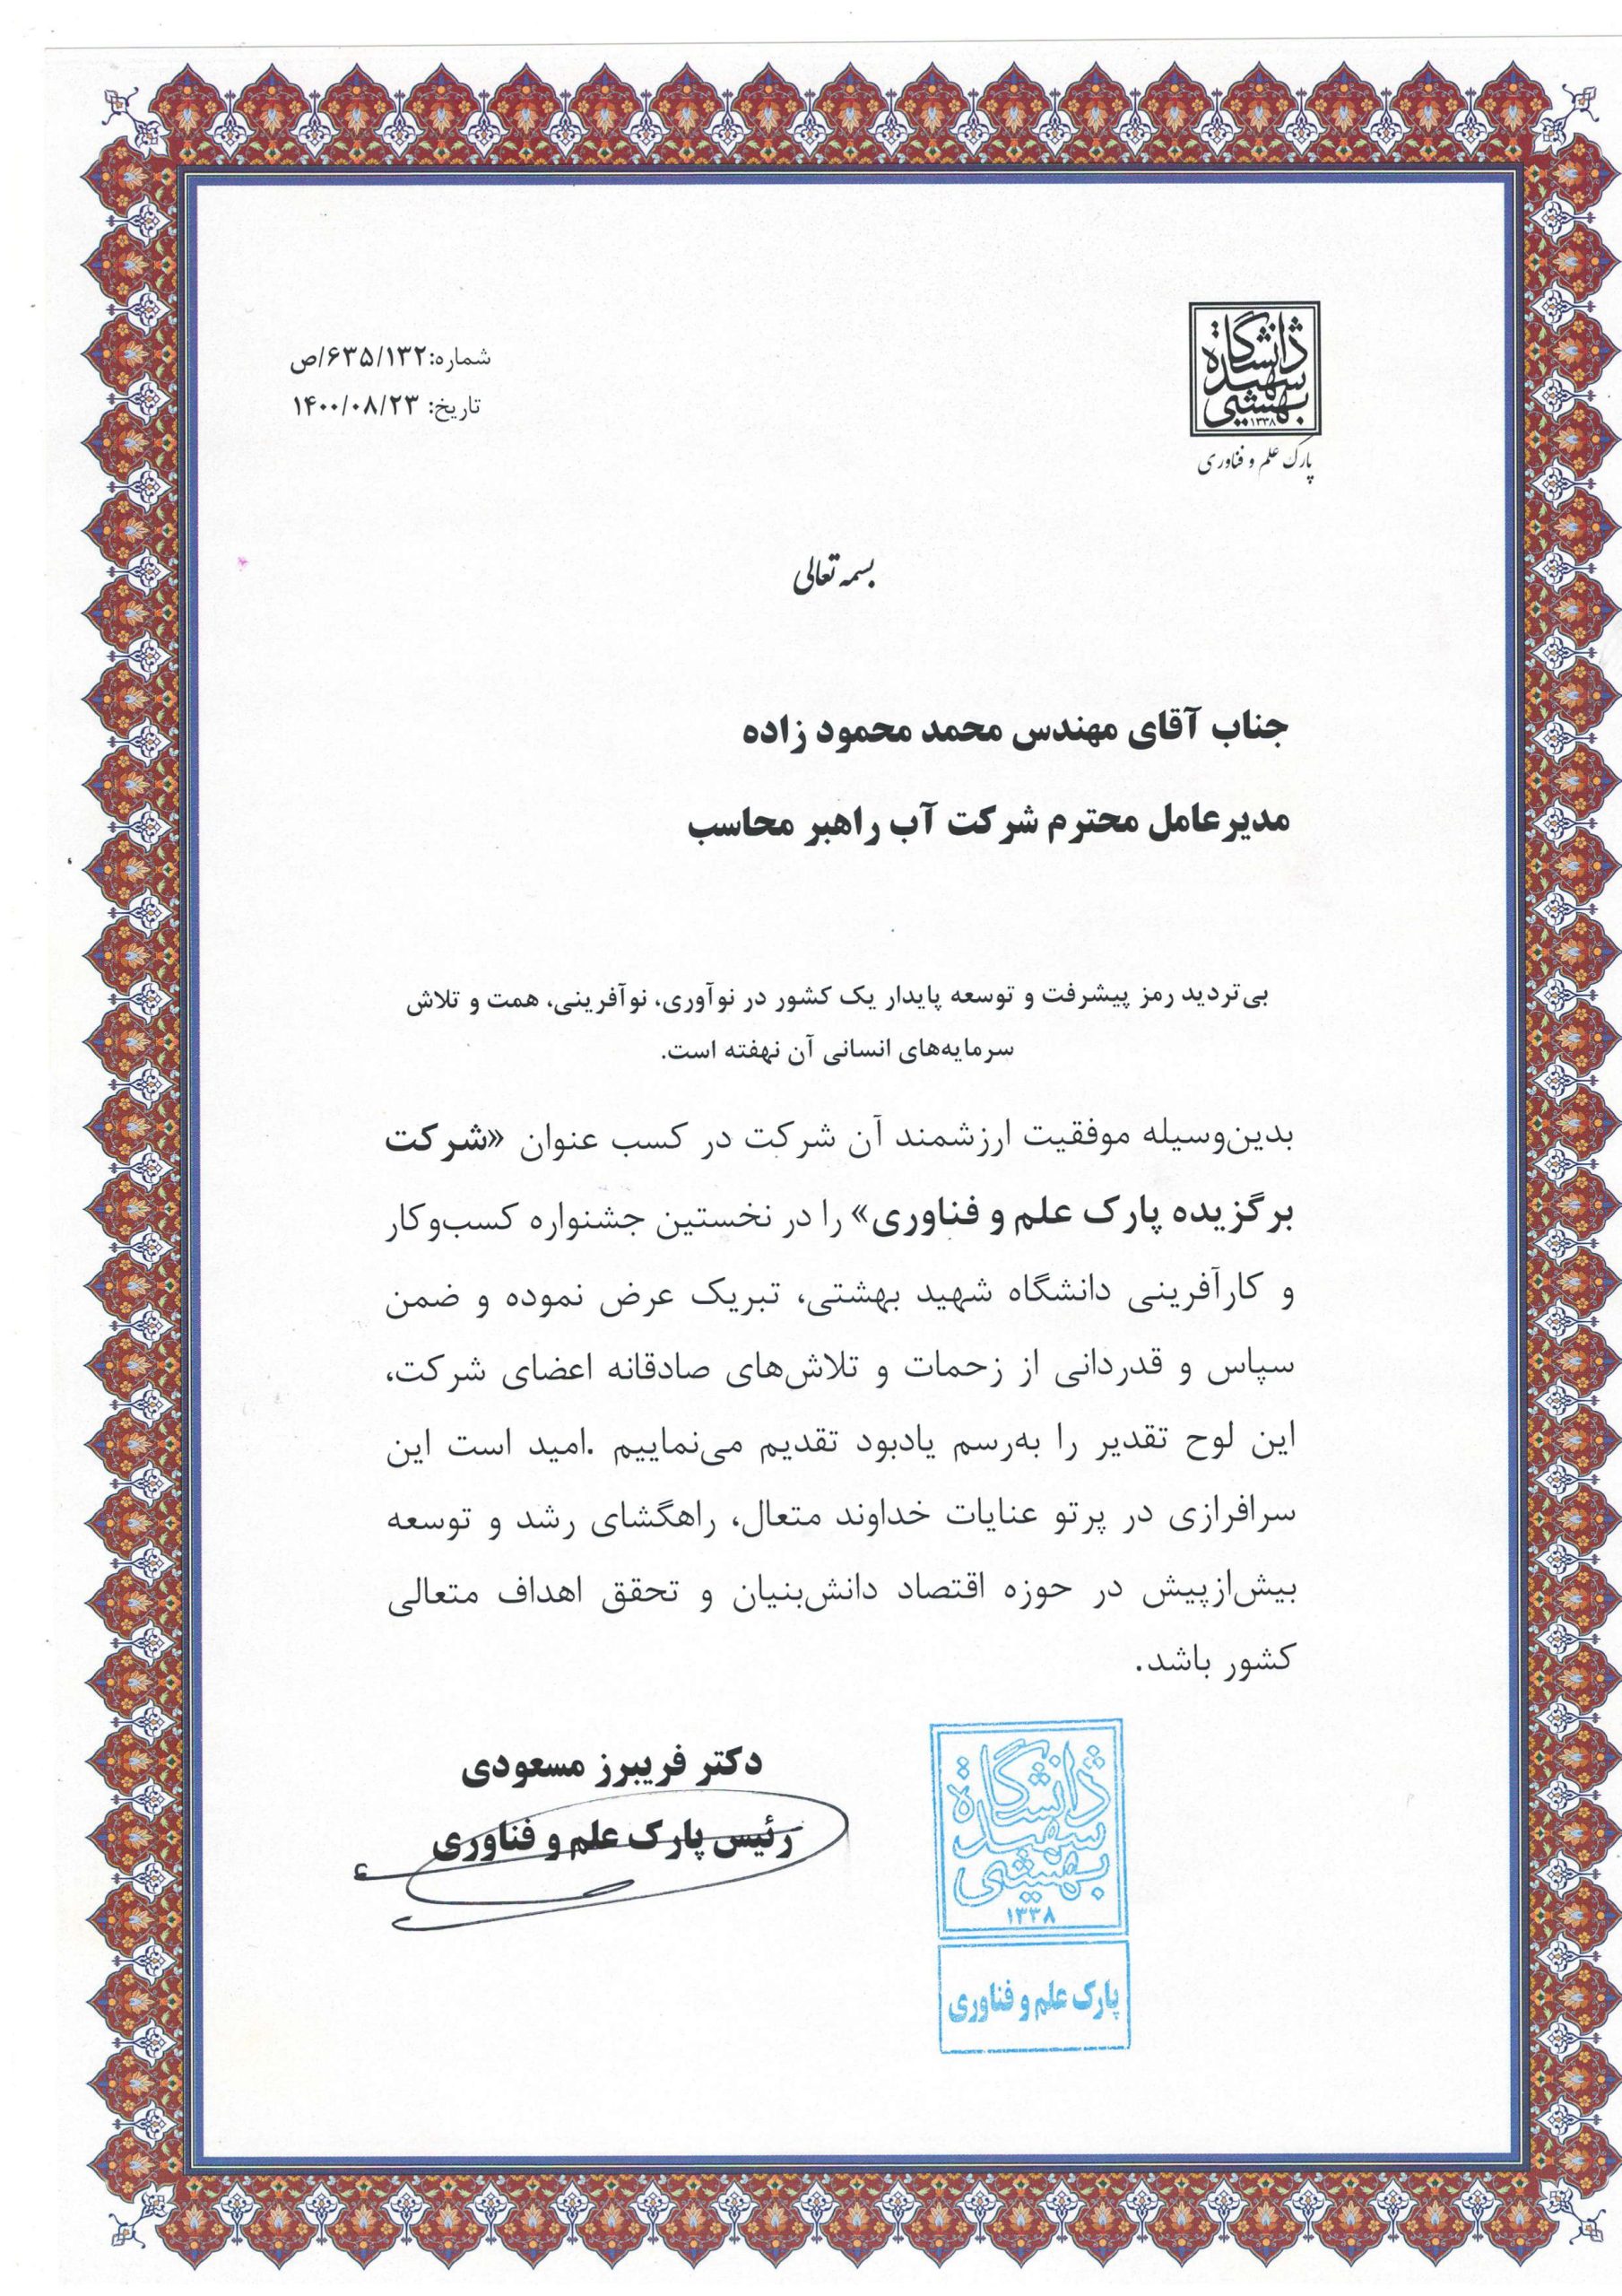 دانشگاه
شهید
بهشتی
۱۳۳۸
پارک علم و فناوری
شماره:۶۳۵/۱۳۲/ص
تاریخ: ۱۴۰۰/۰۸/۲۳
بسمه تعالی
جناب آقای مهندس محمد محمود زاده
مدیرعامل محترم شرکت آب راهبر محاسب
بی‌تردید رمز پیشرفت و توسعه پایدار یک کشور در نوآوری، نوآفرینی، همت و تلاش
سرمایه‌های انسانی آن نهفته است.
بدین‌وسیله موفقیت ارزشمند آن شرکت در کسب عنوان «شرکت
برگزیده پارک علم و فناوری» را در نخستین جشنواره کسب‌وکار
و کارآفرینی دانشگاه شهید بهشتی، تبریک عرض نموده و ضمن
سپاس و قدردانی از زحمات و تلاش‌های صادقانه اعضای شرکت،
این لوح تقدیر را به‌رسم یادبود تقدیم می‌نماییم .امید است این
سرافرازی در پرتو عنایات خداوند متعال، راهگشای رشد و توسعه
بیش‌ازپیش در حوزه اقتصاد دانش‌بنیان و تحقق اهداف متعالی
کشور باشد.
دکتر فریبرز مسعودی
رئیس پارک علم و فناوری
دانشگاه
شهید
بهشتی
۱۳۳۸
پارک علم و فناوری